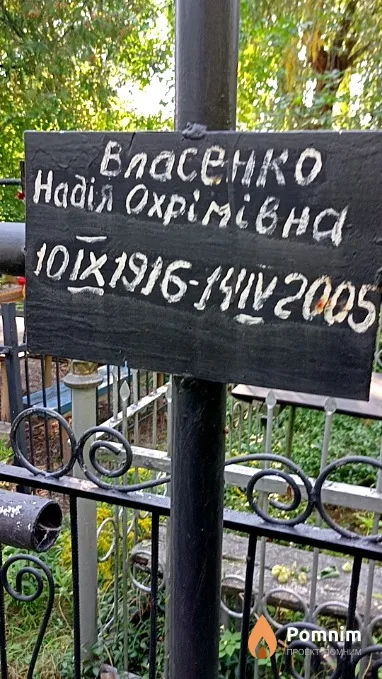 Власенко
Надія Охрімівна
10 IX 1916 - 14 IV 2005
Pomnim
ПРОЕКТ ПОМНИМ